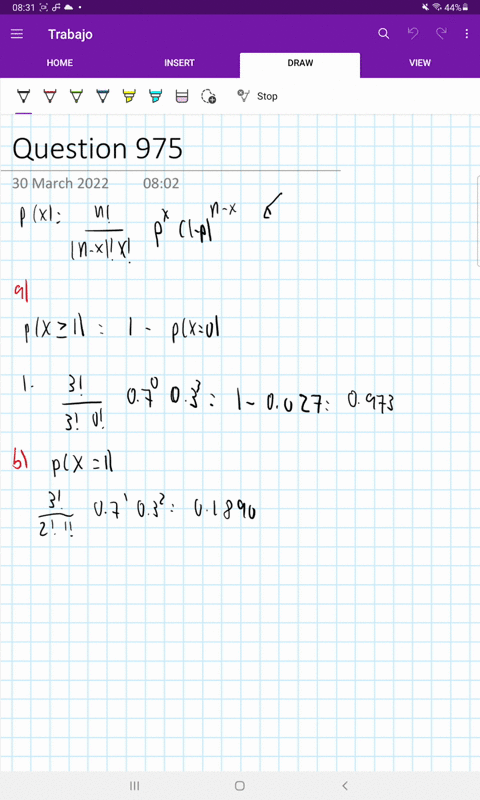 08:31 44%
Trabajo
HOME INSERT DRAW VIEW
Stop
Question 975
30 March 2022 08:02
p(x): n! / (n-x)! x! p^x (1-p)^n-x
a)
p(X ≥ 1) = 1 - p(X=0)
1- 3! / 3! 0! 0.7^0 0.3^3 = 1 - 0.027 = 0.973
b) p(X = 1)
3! / 2! 1! 0.7^1 0.3^2 = 0.1890